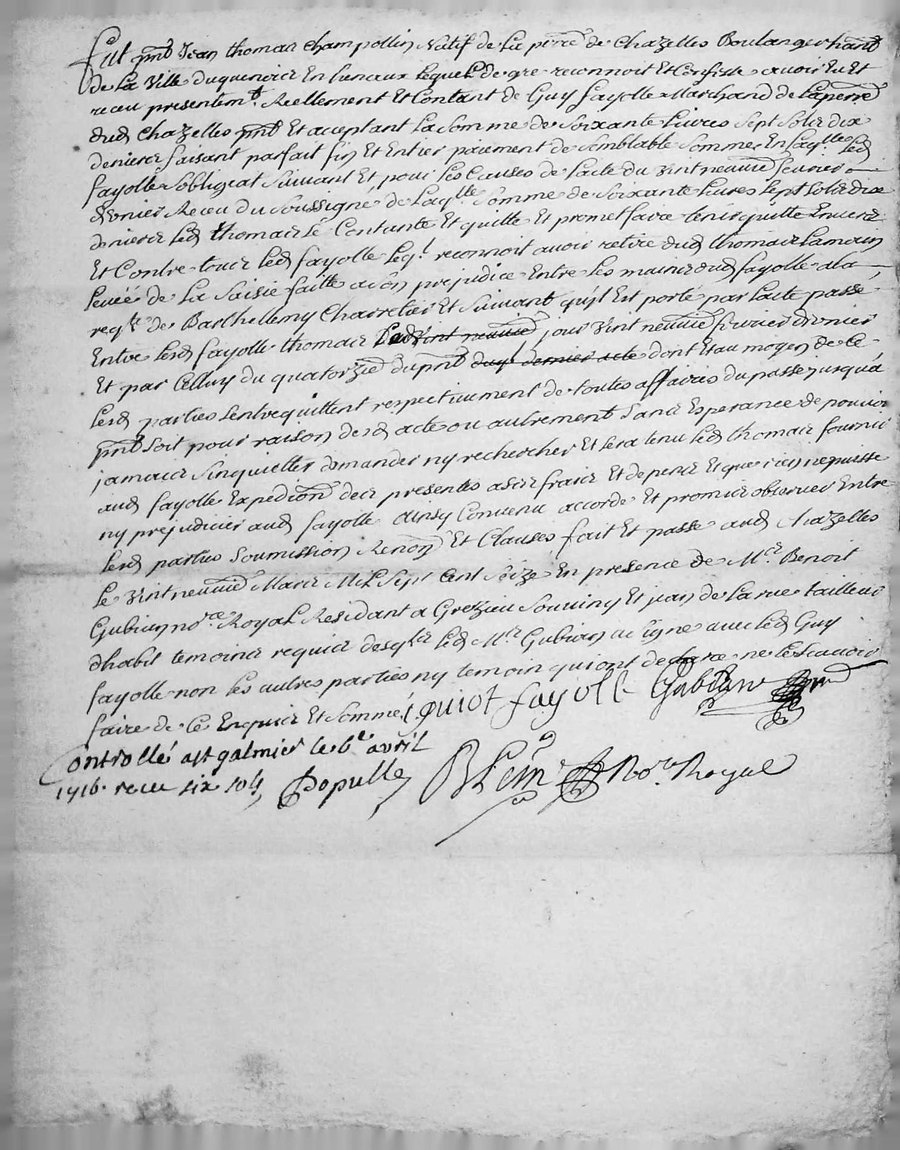 fut pnt Jean thomas Champollin Natif de la perre de Chazelles Boulanger hant
de la Ville du En lequel de gre reconnoit Et Confesse avoir Eu Et
receu presentemt. Reellement Et Contant de Guy fayolle Marchand de la perre
dud Chazelles pnt Et aceptant la somme de soixante livres sept solz dix
deniers faisant parfait fin Et Entier paiement de semblable somme En laqlle led
fayolle sobligeat suivant Et pour les Causes de lacte du vint neufvie fevrier
dernier Receu du soussigné de laqlle somme de soixante livres sept solz dix
deniers led thomas se Contante Et quitte Et promet faire tenir quitte Envers
Et Contre tous led fayolle leql reconnoit avoir retire dud thomas la main
levée de la saisie faitte a son prejudice Entre les mains dud fayolle a la
reqte de Barthellemy Charretier Et suivant quil Est porté par lacte passé
Entre lesd fayolle thomas led vint neufvie jour vint neufvie fevrier dernier
Et par Celluy du quatorzie du pnt dernier acte dont Et au moyen de Ce
lesd parties sentrequittent respectivement de toutes affaires du passe jusqua
pnt soit pour raison desd acte ou autrement sans Esperance de pouvoir
jamais sinquietter demander ny rechercher Et sera tenu led thomas fournir
aud fayolle Expedion des presentes a ses fraix Et depens Et que rien ne puisse
ny prejudicier aud fayolle Ainsy Convenu accorde Et promis observer Entre
lesd parties soumission Renon Et Clauses fait Et passe aud Chazelles
le vint neufvie Mars Mil sept Cent seize En presence de Mre Benoit
Gubian nore Royal Residant a Grezieu Souviny Et jean de la rue tailleur
dhabit temoins requis desqls led Mre Gubian a signe avec led Guy
fayolle non les autres parties ny temoin qui ont declare ne le scavoir
faire de Ce Enquis Et sommé guiot fayolle Gubian
Controllé a st galmier le 6e avril
1716. receu six solz Populle Nore. Royal